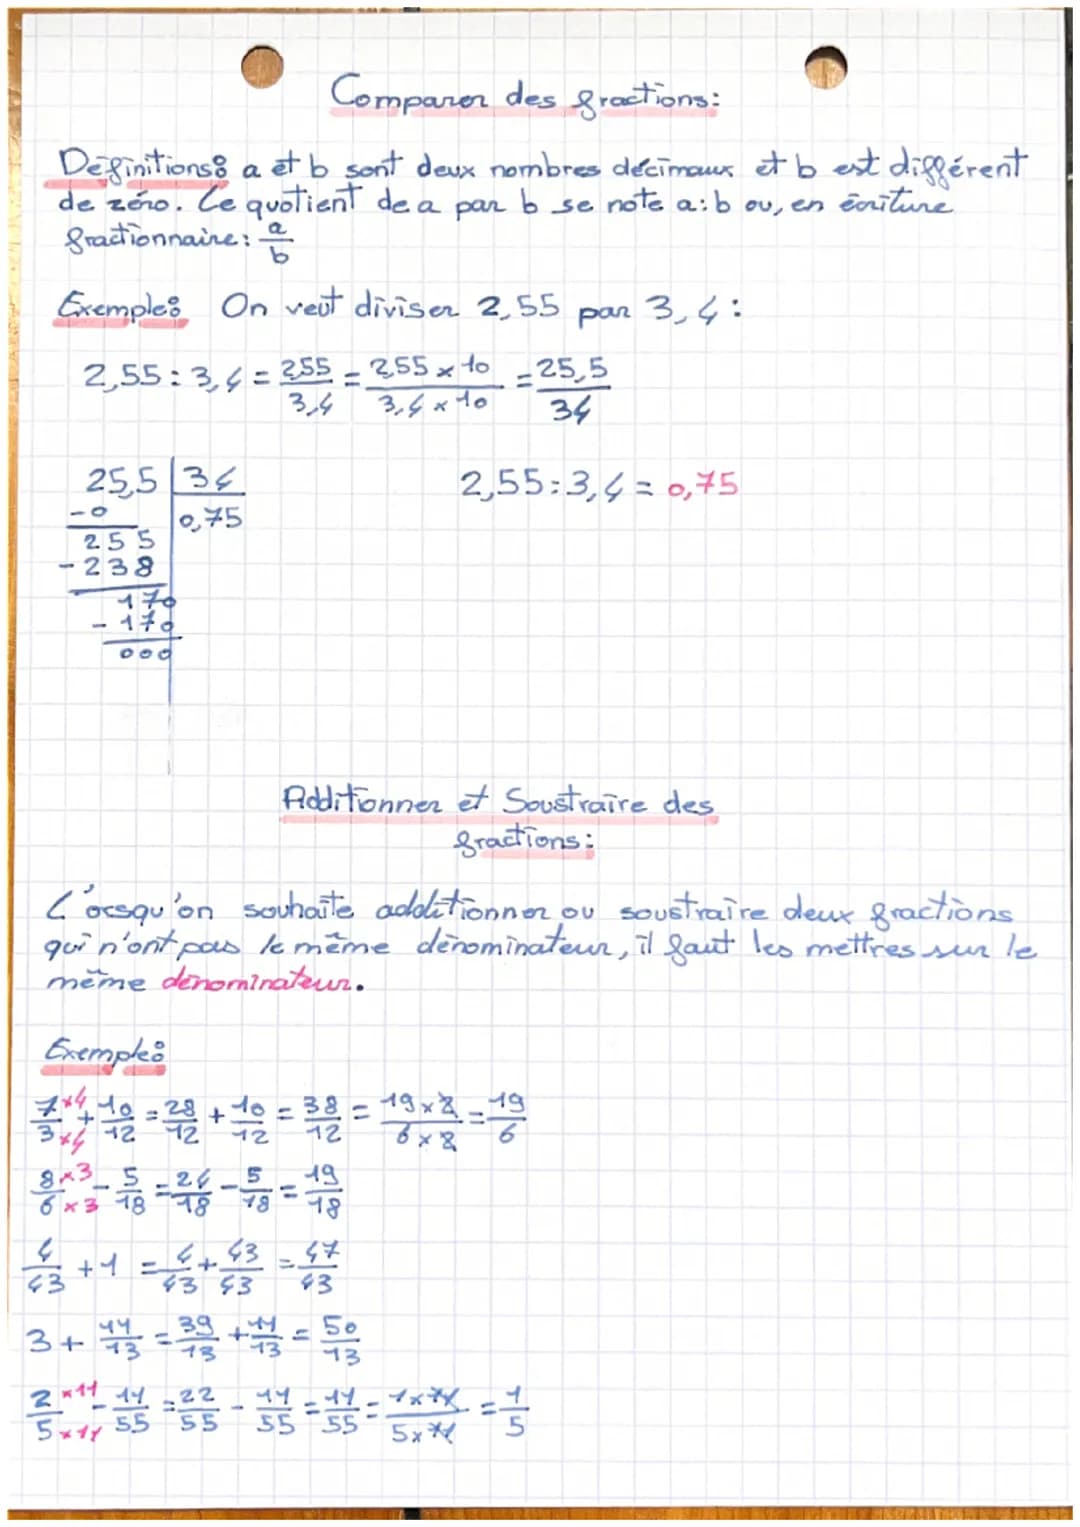 Comparer des fractions:
Définitions: a et b sont deux nombres décimaux et b est différent
de zéro. Le quotient de a par b se note a:b ou, en écriture
fractionnaire: a/b
Exemple: On veut diviser 2,55 par 3,4 :
2,55 : 3,4 = 2,55/3,4 = 2,55 × 10/3,4 × 10 = 25,5/34
25,5 | 34
-0 | 0,75
255
-238
170
-170
000
2,55:3,4 = 0,75
Additionner et Soustraire des
fractions:
L'orsqu'on souhaite additionner ou soustraire deux fractions
qui n'ont pas le même dénominateur, il faut les mettres sur le
même dénominateur.
Exemple:
7×4/3×4 + 10/12 = 28/12 + 10/12 = 38/12 = 19×2/6×2 = 19/6
8×3/6×3 - 5/18 = 24/18 - 5/18 = 19/18
4/43 + 1 = 4/43 + 43/43 = 47/43
3 + 11/13 = 39/13 + 11/13 = 50/13
2×11/5×11 - 11/55 = 22/55 - 11/55 = 11/55 = 1×11/5×11 = 1/5